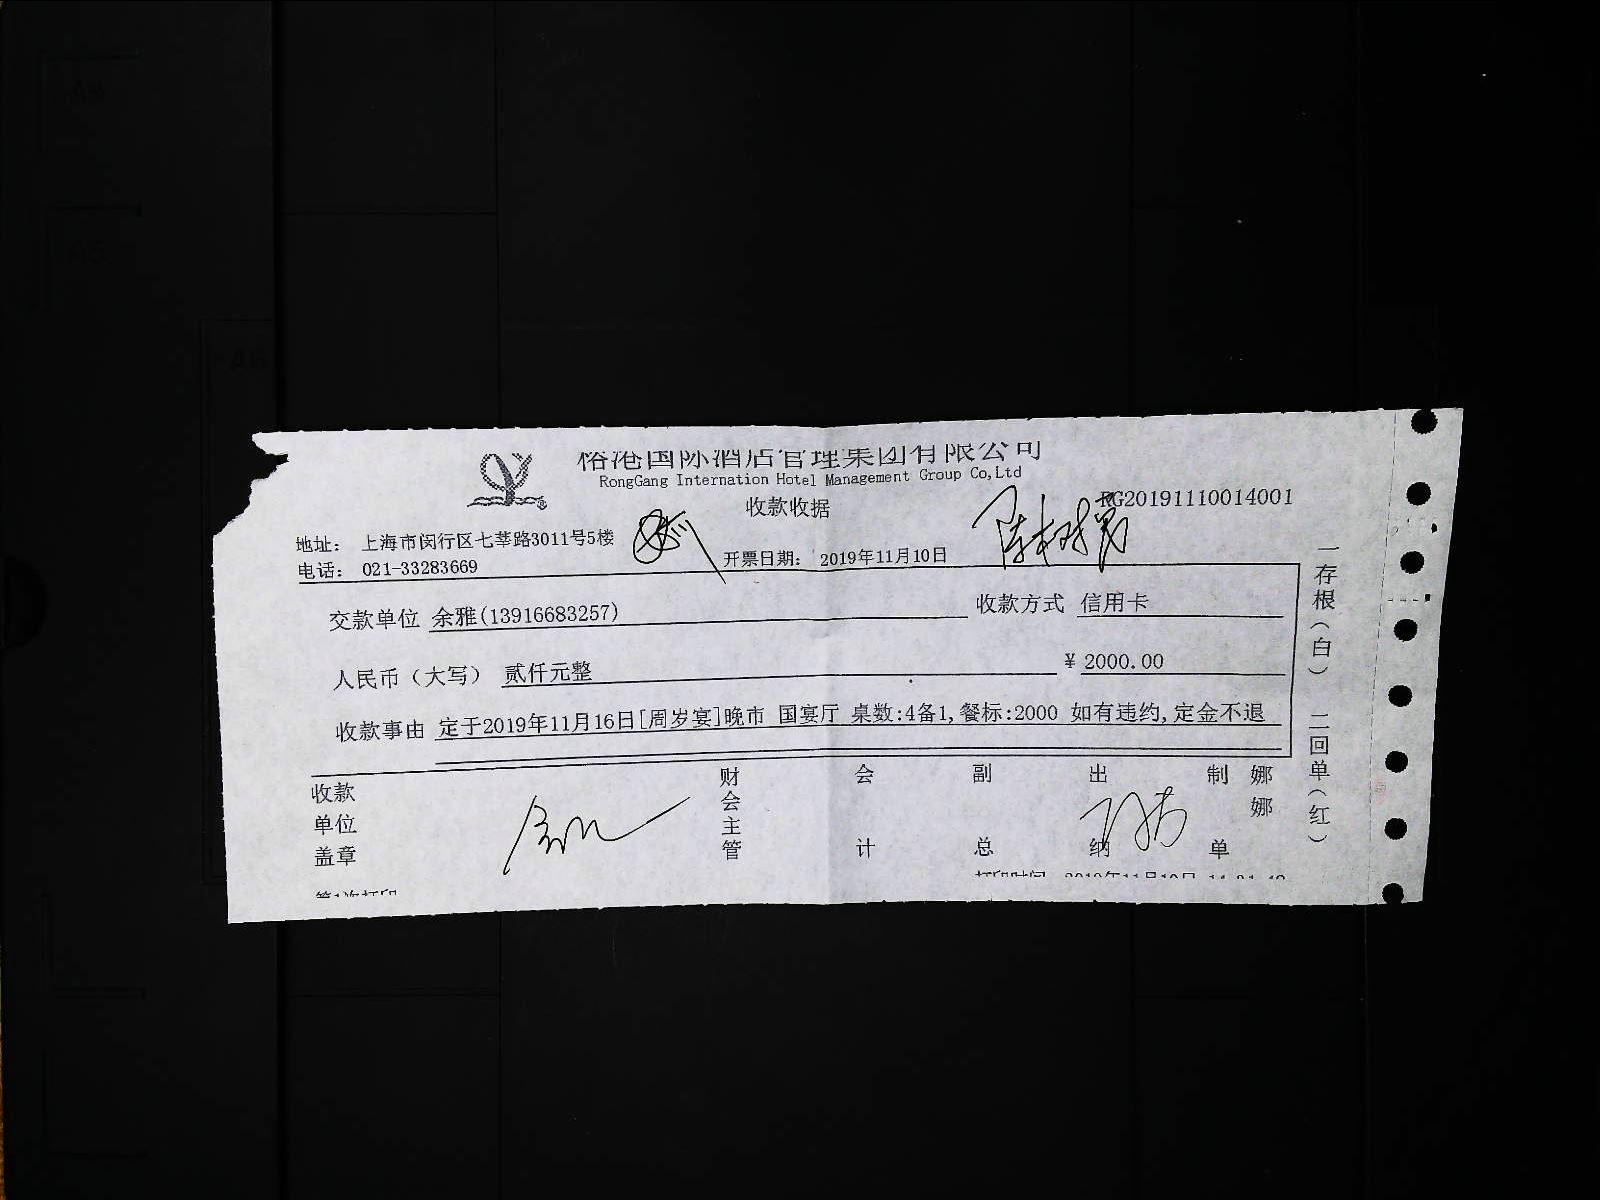 裕港国际酒店管理集团有限公司
RongGang Internation Hotel Management Group Co,Ltd
收款收据
RG20191110014001
地址： 上海市闵行区七莘路3011号5楼
电话： 021-33283669
开票日期： 2019年11月10日
交款单位 余雅(13916683257)
收款方式 信用卡
人民币（大写） 贰仟元整
¥ 2000.00
收款事由 定于2019年11月16日[周岁宴]晚市 国宴厅 桌数:4备1,餐标:2000 如有违约,定金不退
收款单位盖章
财会主管
会计
副总
出纳
制单
娜娜
第1次打印
打印时间
一存根（白） 二回单（红）